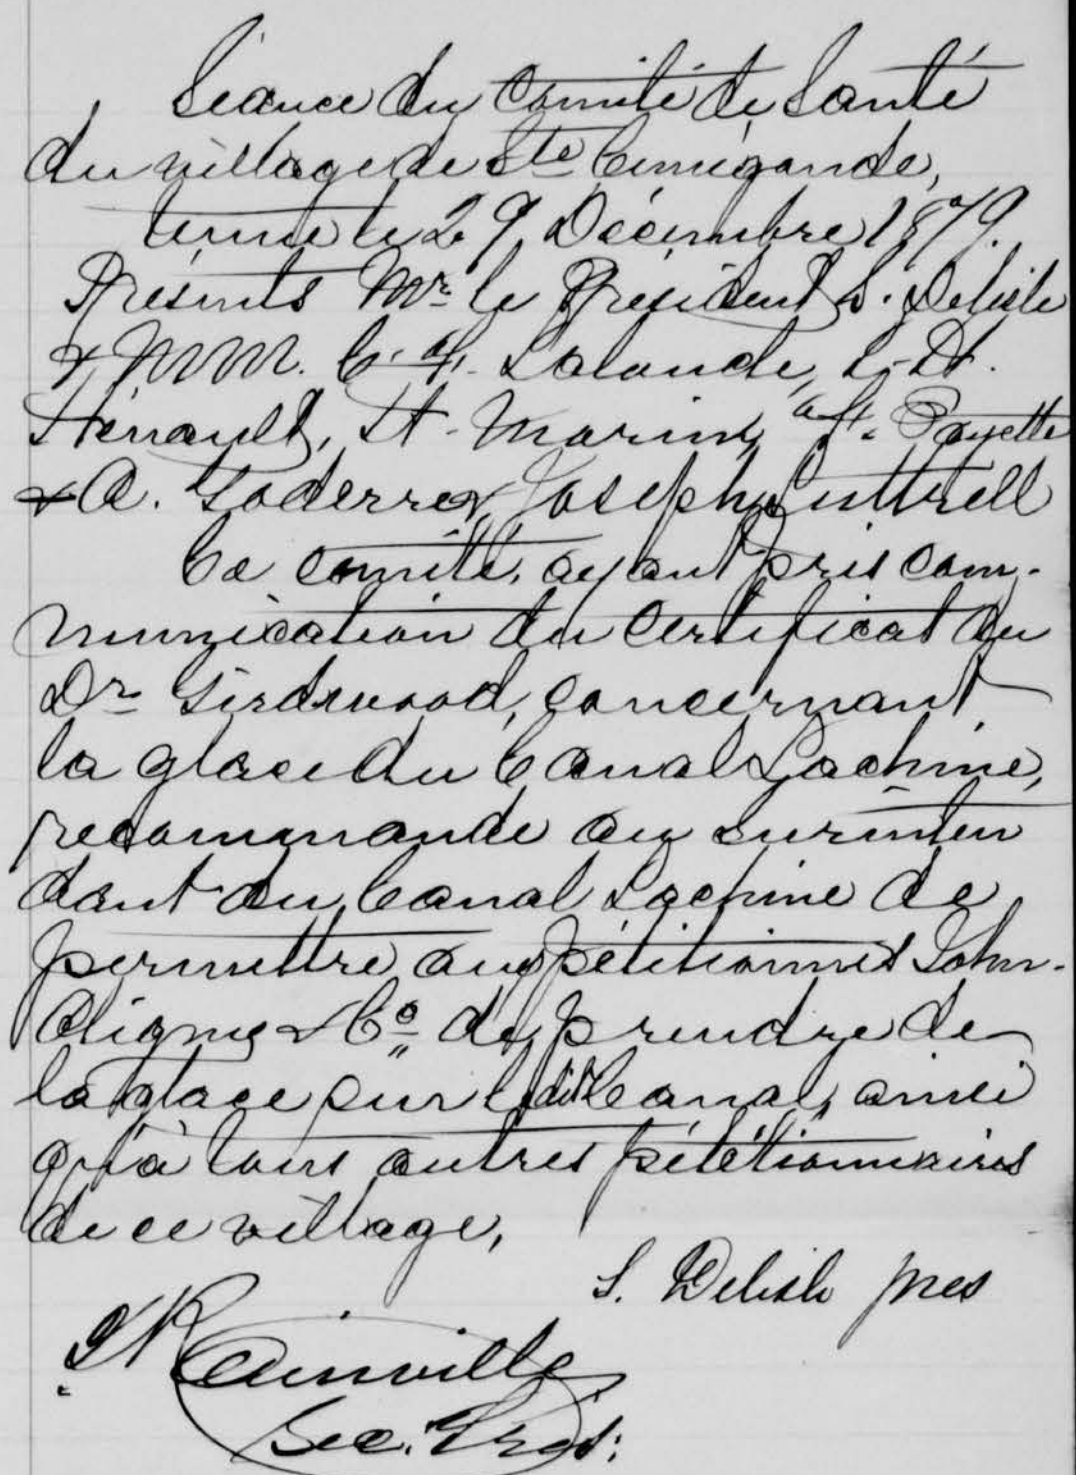 Séance du Comité de Santé
du village de Ste Cunégonde,
tenue le 29 Décembre 1879.
Présents Mr. le Président S. Delisle
& MM. C. F. Lalonde, L. H.
Hénault, H. Morin, Payette
& A. Goderre & Joseph Luttrell
Ce comité, ayant pris com-
munication du certificat du
Dr Girdwood, concernant
la glace du Canal Lachine,
recommande au surinten
dant du Canal Lachine de
permettre aux pétitionnes John
& Co. de prendre de
la glace sur le dit Canal, ainsi
qu'à tous autres pétitionnaires
de ce village,
S. Delisle pres
Rainville
Sec. Trés: